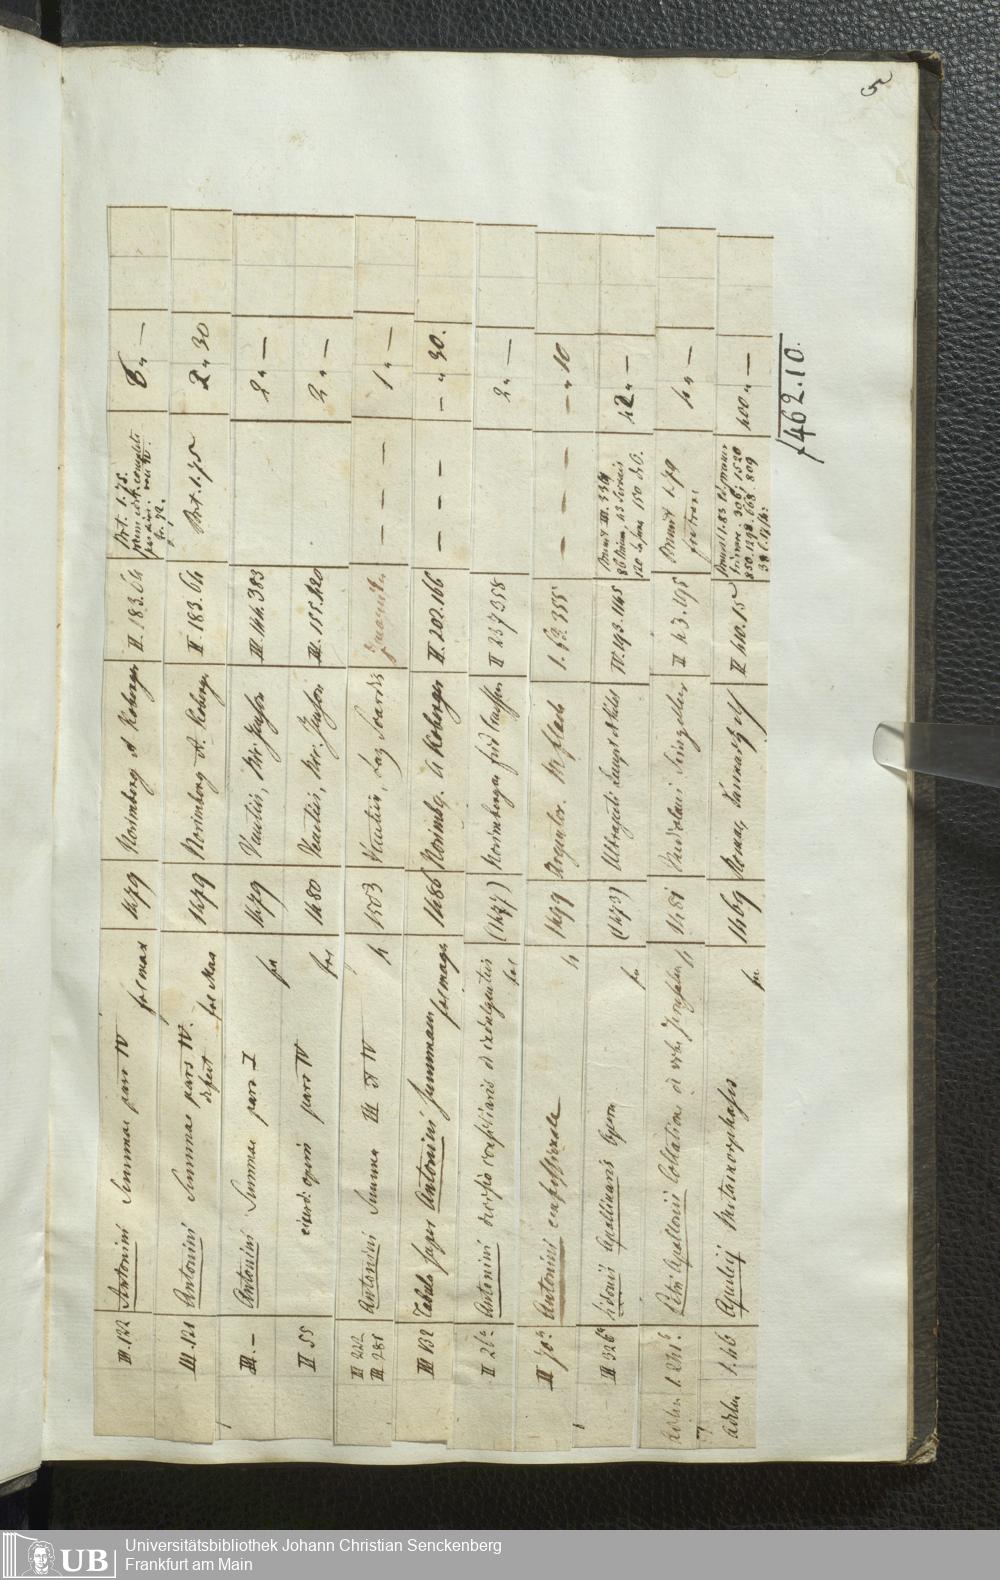 5
III. 122 Antonini Summae pars IV fol max 1479 Norimberg A Koberger II. 183.64 Brt. 1.75. 6 „ —
III. 121 Antonini Summae pars IV. defect fol Max 1479 Norimberg A. Koberger II 183.64 Brt. 1.75 2 „ 30
III. — Antonini Summae pars I fol 1479 Venetiis, Nic. Jenson III. 144.383 2 „ —
II 55 eiusd. operis pars IV fol 1480 Venetiis, Nic. Jenson III. 155.420 2 „ —
II 222
III. 281 Antonini Summa III et IV 4 1503 Venetiis, Laz Soardis — — — 1 „ —
III 132 Tabula super Antonini Summam fol mag. 1486 Norimbg. A Koberger II. 202.166 — — — — „ 30.
II 26a Antonini fol (1477) Norimbergae frid Creussner II 237 358 2 „ —
II 70b Antonini confessionale 4 1499 Argentor. M flach I. 63. 355 — — — — „ 10
III 326a Sidonii Apollinaris Opera fol (1473) Ultrajecti IV. 493. 1165 Brunet III. 42 „ —
Petri Apollonii Collatina de urbe Jerusalem 4 1481 Mediolani II 43. 195 Brunet 1.79 4 „ —
1.46 Apuleij Metamorphosis fol. 1469 Romae, II 410. 15 Brunet 1.83 400 „ —
f 462.10.
UB
Universitätsbibliothek Johann Christian Senckenberg
Frankfurt am Main